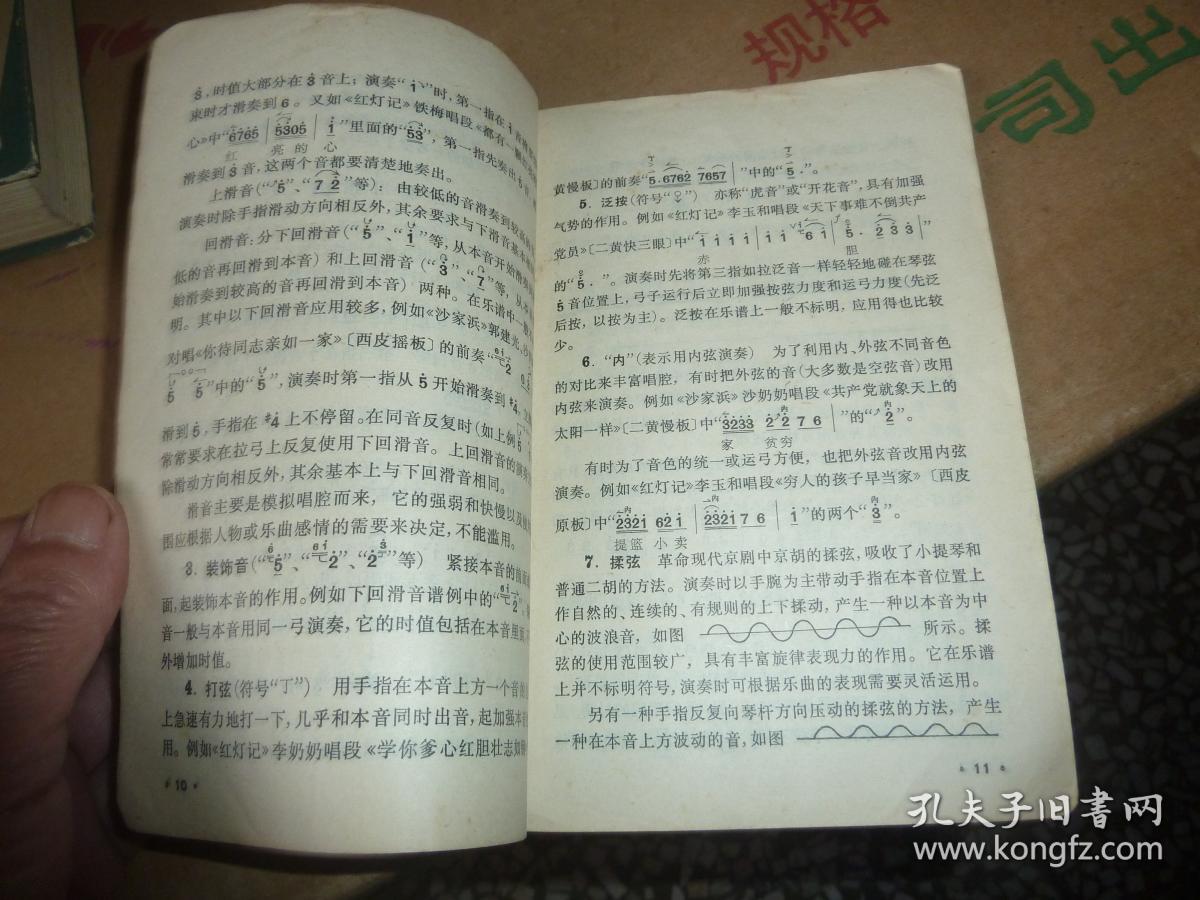 3，时值大部分在3音上；演奏“1”时，第一指在1音
束时才滑奏到6。又如《红灯记》铁梅唱段《都有一颗红
心》中“6765 | 5305 | 1”里面的“53”，第一指先奏出
红 亮的 心
滑奏到3音，这两个音都要清楚地奏出。
上滑音(“5”、“7 2”等)：由较低的音滑奏到较高的
演奏时除手指滑动方向相反外，其余要求与下滑音基本
回滑音：分下回滑音(“5”、“1”等，从本音开始滑奏
低的音再回滑到本音)和上回滑音(“3”、“7”等，从
始滑奏到较高的音再回滑到本音)两种。在乐谱中一般
明。其中以下回滑音应用较多，例如《沙家浜》郭建光、沙
对唱《你待同志亲如一家》〔西皮摇板〕的前奏“2
5 5”中的“5”，演奏时第一指从5开始滑奏到#4，
滑到5，手指在#4上不停留。在同音反复时(如上例
常常要求在拉弓上反复使用下回滑音。上回滑音的
除滑动方向相反外，其余基本上与下回滑音相同。
滑音主要是模拟唱腔而来，它的强弱和快慢以及
围应根据人物或乐曲感情的需要来决定，不能滥用。
3. 装饰音(“5”、“2”、“2”等) 紧接本音的前面
面，起装饰本音的作用。例如下回滑音谱例中的“2”。
音一般与本音用同一弓演奏，它的时值包括在本音里面
外增加时值。
4. 打弦(符号“丁”) 用手指在本音上方一个音的
上急速有力地打一下，几乎和本音同时出音，起加强本音
用。例如《红灯记》李奶奶唱段《学你爹心红胆壮志如钢
·10·
黄慢板〕的前奏“5.6762 7657 | ”中的“5.”。
5. 泛按(符号“♀”) 亦称“虎音”或“开花音”，具有加强
气势的作用。例如《红灯记》李玉和唱段《天下事难不倒共产
党员》〔二黄快三眼〕中“1 1 1 1 | 1 1 6 1 | 5. 2 3 3 |”
赤 胆
的“5.”。演奏时先将第三指如拉泛音一样轻轻地碰在琴弦
5音位置上，弓子运行后立即加强按弦力度和运弓力度(先泛
后按，以按为主)。泛按在乐谱上一般不标明，应用得也比较
少。
6. “内”(表示用内弦演奏) 为了利用内、外弦不同音色
的对比来丰富唱腔，有时把外弦的音(大多数是空弦音)改用
内弦来演奏。例如《沙家浜》沙奶奶唱段《共产党就象天上的
太阳一样》〔二黄慢板〕中“3233 2 2 7 6 | ”的“2”。
家 贫穷
有时为了音色的统一或运弓方便，也把外弦音改用内弦
演奏。例如《红灯记》李玉和唱段《穷人的孩子早当家》〔西皮
原板〕中“2321 62 1 | 2321 7 6 | 1”的两个“3”。
提篮 小 卖
7. 揉弦 革命现代京剧中京胡的揉弦，吸收了小提琴和
普通二胡的方法。演奏时以手腕为主带动手指在本音位置上
作自然的、连续的、有规则的上下揉动，产生一种以本音为中
心的波浪音，如图 所示。揉
弦的使用范围较广，具有丰富旋律表现力的作用。它在乐谱
上并不标明符号，演奏时可根据乐曲的表现需要灵活运用。
另有一种手指反复向琴杆方向压动的揉弦的方法，产生
一种在本音上方波动的音，如图
·11·
规格
司出
孔夫子旧书网
www.kongfz.com